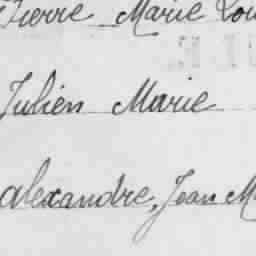 Pierre Marie Lou
Julien Marie
Alexandre, Jean M